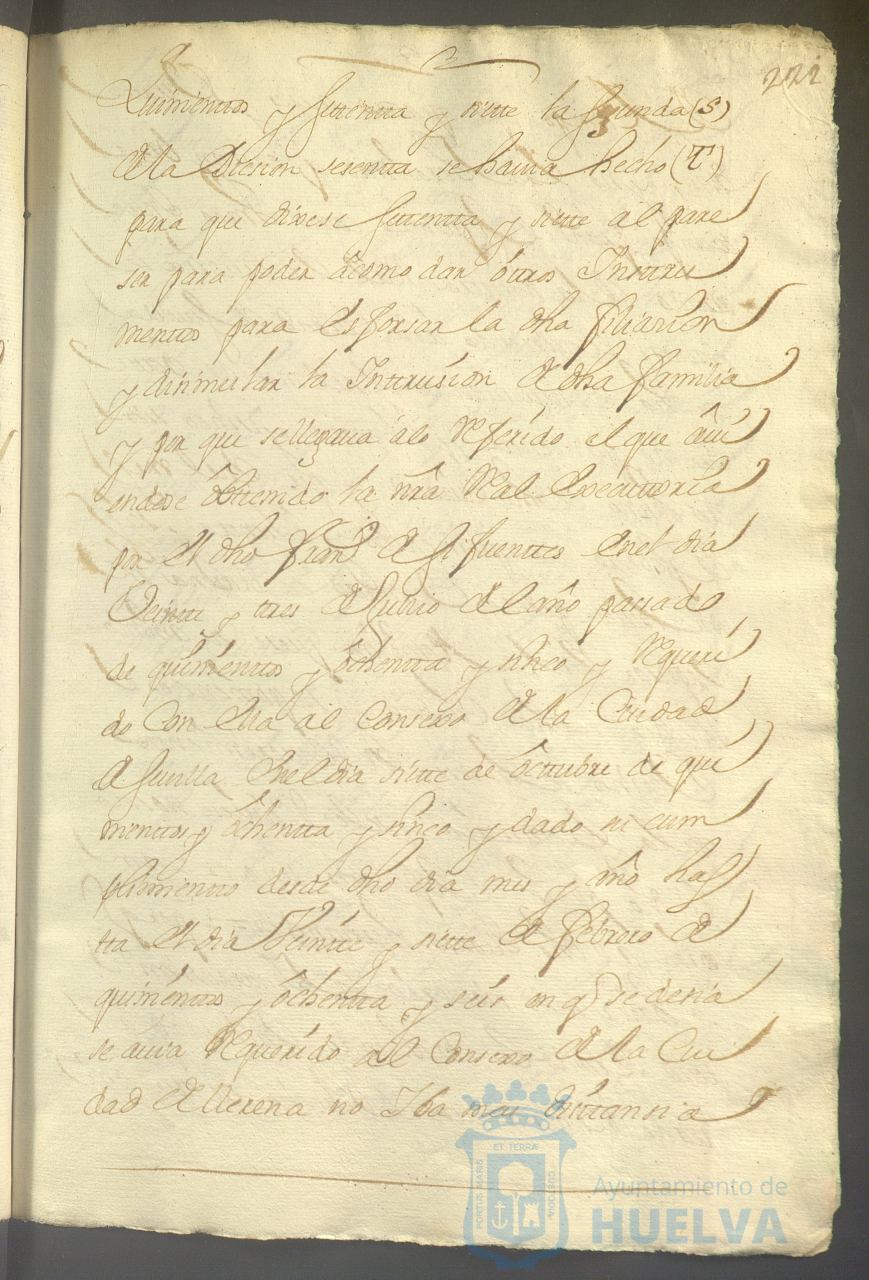 221
Quinientos y settenta y siette la segunda (S)
de la Diccion sesentta se havia hecho (T)
para que dixese settentta y siette al pare
ser para poder acomodar ôtros Instru
mentos para esforsar la dha filiacion
y disimular la Intrusion de dha familia
y por que se llegava âlo Referido el que âvi
endose ôbttenido la nrâ Real Executtoria
por el dho Franco de Sifuentes en el dia
Veintte y tres de Junio del año passado
de quinienttos y ôchentta y sinco y Requeri
do con ella al Consexo de la Ciudad
de Sevilla en el dia siette de ôcttubre de qui
nienttos y ôchentta y sinco y dado su cum
plimientto desde dho dia mes y año has
tta el dia Veintte y siette de febrero de
quinienttos y ôchentta y seis en q se desia
se avia Requerido al Consexo de la Ciu
dad de Llerena no Iba mas disttansia
ET TERRÆ
PORTUS MARIS
CUSTODIA
Ayuntamiento de
HUELVA